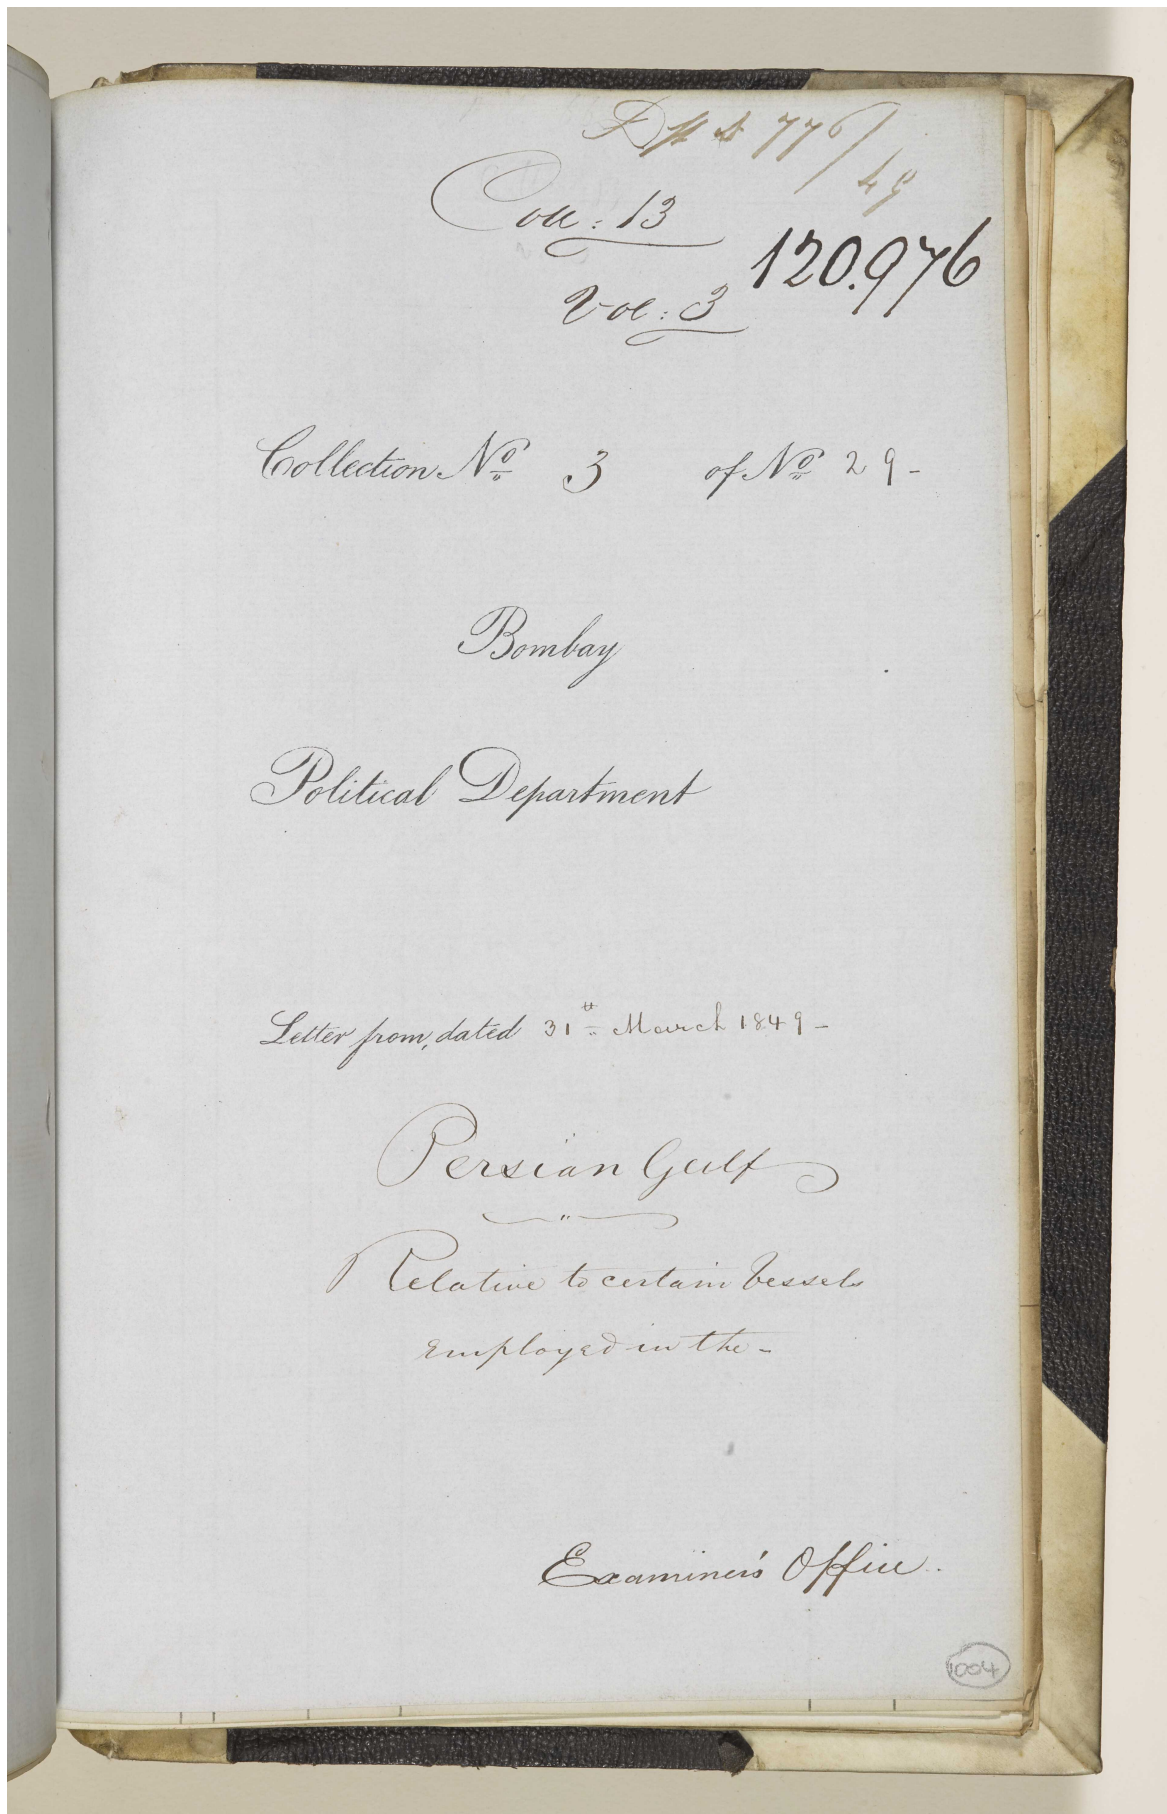 Dft 776/49
Coll: 13
120.976
Vol: 3
Collection No 3 of No 29 -
Bombay
Political Department
Letter from, dated 31st March 1849 -
Persian Gulf
Relative to certain Vessels
employed in the -
Examiner's Office.
1004